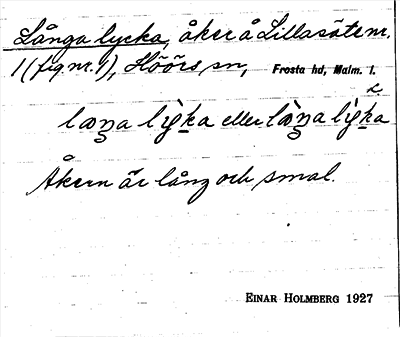 Långa lycka, åker å Lillasäte nr.
1 (fig nr. 1), Höörs sn, Frosta hd, Malm. l.
eller
Åkern är lång och smal.
EINAR HOLMBERG 1927